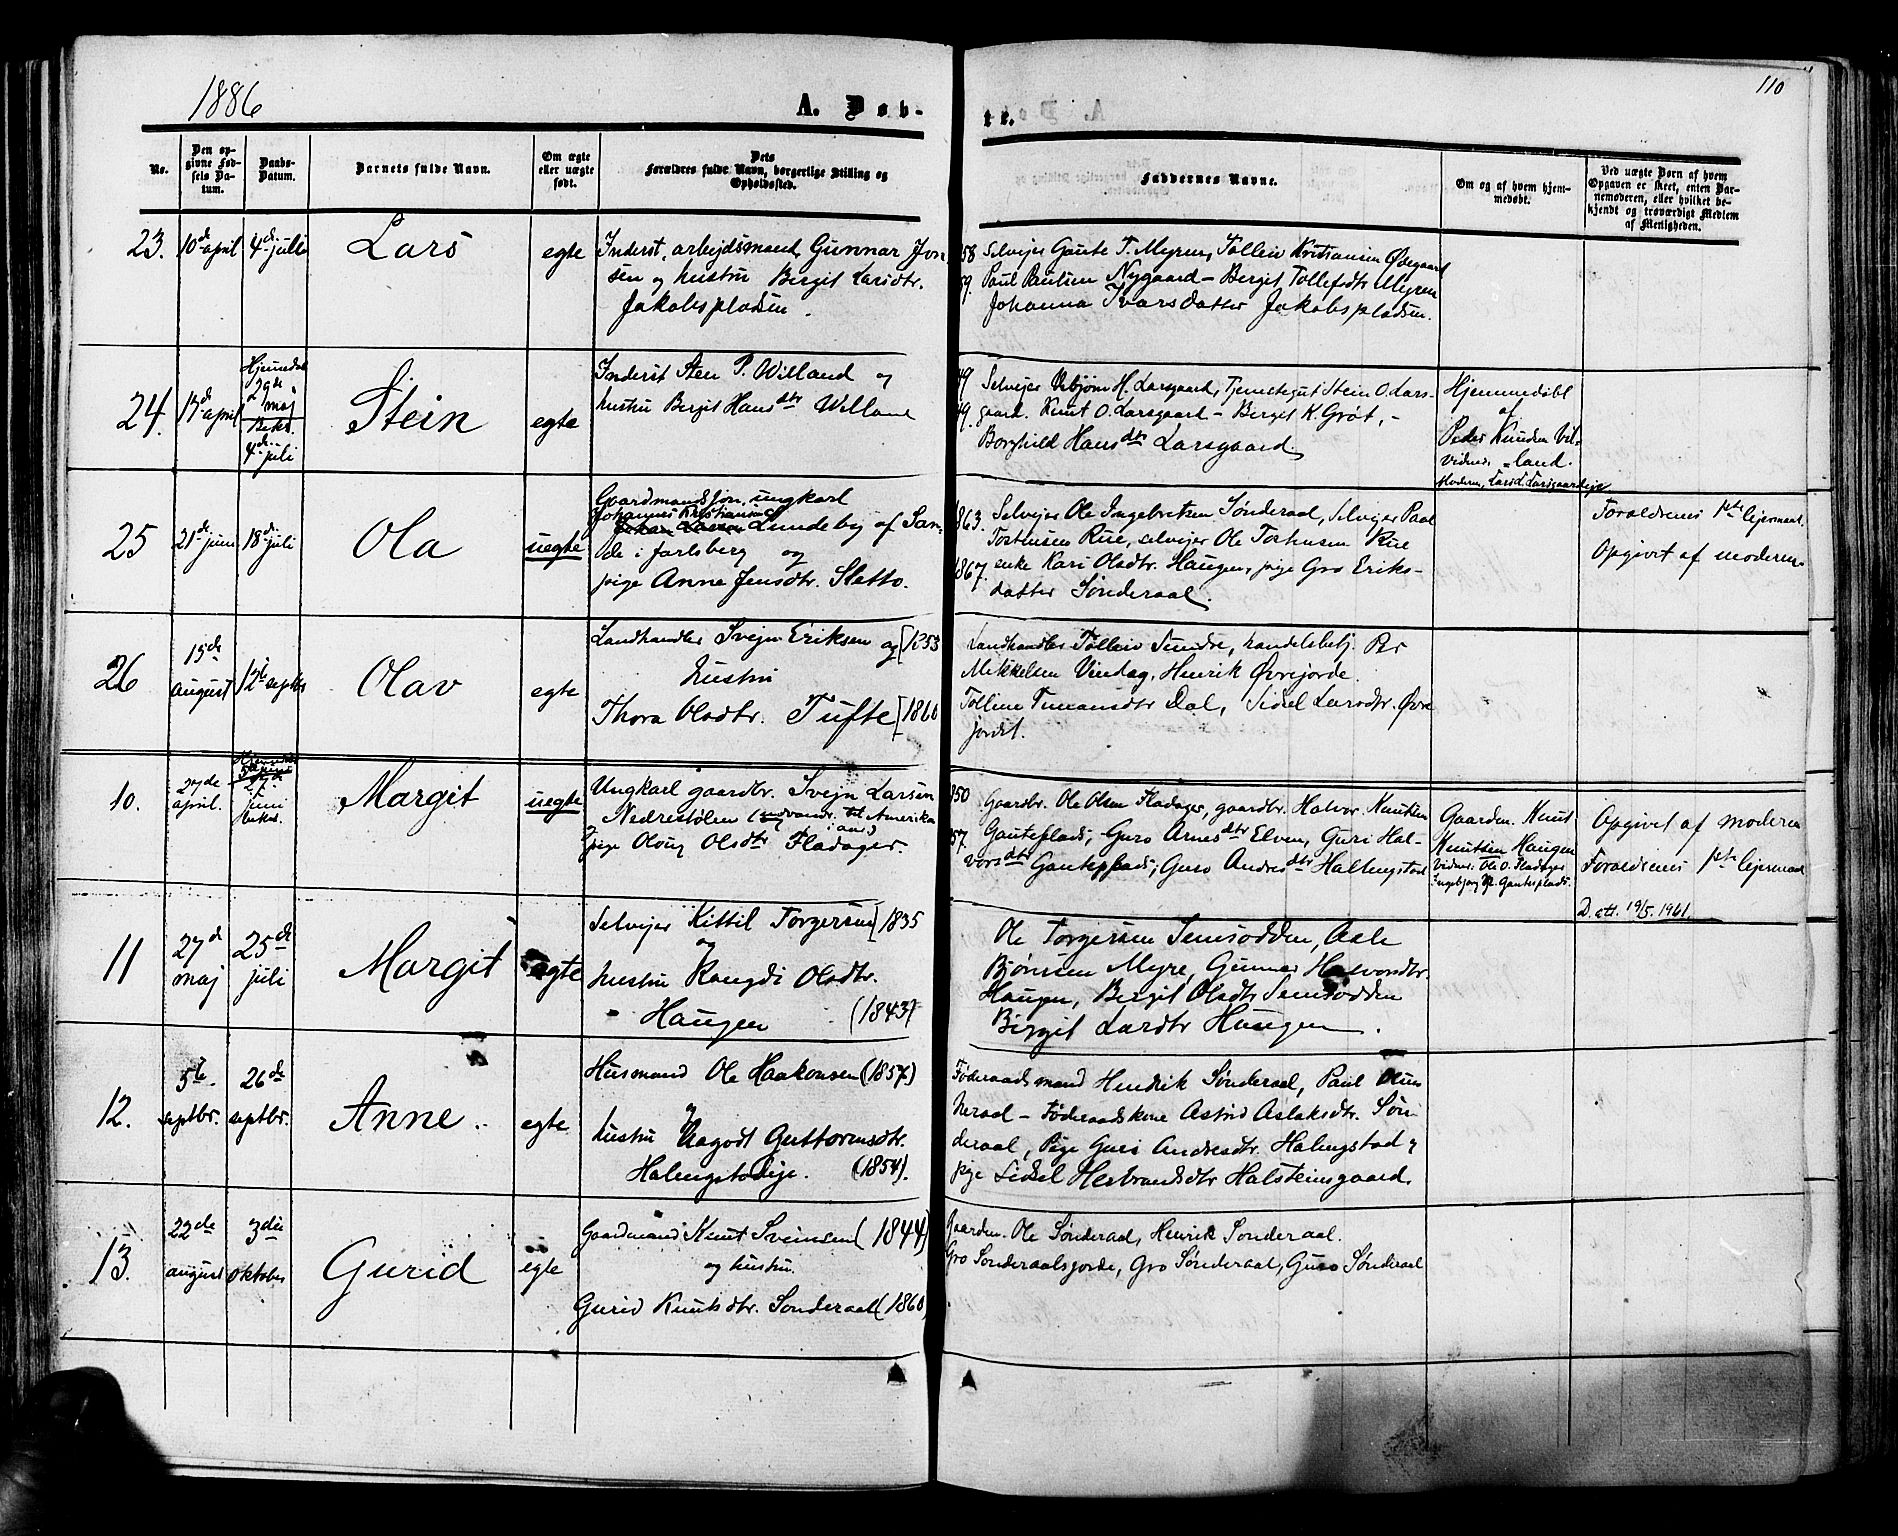 1886
A. Døb-
te.
110
No.
Den opgivne Fødsels Datum.
Daabs-Datum.
Barnets fulde Navn.
Om ægte eller uægte født.
Dets Forældres fulde Navn, borgerlige Stilling og Opholdssted.
Faddernes Navne.
Om og af hvem hjemmedøbt.
Ved uægte Børn af hvem Opgaven er skeet, enten Barnemoderen, eller hvilket bekjendt og troværdigt Medlem af Menigheden.
23. 10de april 4de juli Lars egte
Inderst, arbejdsmand Gunnar Jon
sen og hustru Bergit Larsdtr.
Jakobspladsen.
58 Selvejer Gaute T. Myren, Tollein Kristiansen Ødegaard
59. Paul Paulsen Nygaard – Bergit Tollefsdtr Myren
Johanna Ivarsdatter Jakobspladsen.
24. april Hjemmedøb 29de maj 4de juli Stein egte
Inderst Sten P. Willand og
hustru Bergit Hansdtr Willand
49 Selvejer Asbjørn H. Larsgaard, Tjenestegut Stein O. Lars-
49. gaard. Knut O. Larsgaard – Bergit K. Grøt, –
Borghild Hansdtr Larsgaard.
Hjemmedøbt
af
Peder Knudsen Vil-
Vidner land.
Moderen, Lars L. Larsgaardeje
25 21de juni 18de juli Ola uegte
Gaardmandssøn, ungkarl
Johannes Kristiansen
Johan Larsen Lundeby af San-
de i Jarlsberg og
pige Anne Jensdtr. Sletto.
1863. Selvejer Ole Ingebretsen Sønderaal, Selvejer Paal
Torstensen Rue, selvejer Ole Torstensen Rue
1867. enke Kari Olsdtr. Haugen, pige Gro Eriks-
datter Sønderaal.
Forældrenes 1ste lejermaal.
Opgivet af moderen.
26 15de august 12te septbr Olav egte
Landhandler Svejn Eriksen og [1853
hustru
Thora Olsdtr. Tufte [1860
Landhandler Tollein Sundre, handelsbetj. Per
Mikkelsen Vindeg, Henrik Øvrejorde.
Tolline Timansdtr Dal, Sidsel Larsdtr. Øvre
jordet.
10. 27de april. 27de juni Margit uegte
Ungkarl gaardbr. Svejn Larsen
Nedrestølen (udvandr. til Amerika
i aar)
pige Oloug Olsdtr Fladager.
850 Gaardbr. Ole Olsen Fladager, gaardbr. Halvor Knutsen
57. Gauteplads, – Guro Arnesdtr Elven, Guri Hal-
vorsdtr Gauteplads; Guro Andresdtr Halingstad
Gaarden. Knut
Knutsen Haugen
Vidner: Ole O. Fladager
Ingebjørg Gauteplads.
Opgivet af moderen
Forældrenes 1ste lejermaal
D. att. 19/5. 1961.
11 27de maj 25de juli Margit egte
Selvejer Kittil Torgersen [1835
og
hustru Rangdi Olsdtr.
Haugen (1843)
Ole Torgersen Semsodden, Aale
Bjønsen Myre, Gunnar Halvordtr.
Haugen, Bergit Olsdtr Semsodden
Birgit Larsdtr Haugen.
12. 5te septbr. 26de septbr. Anne egte
Husmand Ole Haakonsen (1857)
og
hustru Ragndi Guttormsdtr.
Halingstadeje. (1854).
Føderaadsmand Hendrik Sønderaal, Paul Olsen
Neraal – Føderaadskone Astrid Aslaksdtr. Søn
deraal, Pige Guri Andresdtr. Halingstad og
pige Sidsel Herbrandsdtr Halsteinsgaard.
13. 22de august 3die oktober Gurid egte
Gaardmand Knut Sveinsen (1844)
og hustru
Gurid Knutsdtr. Sønderaal (1860)
Gaarden. Ole Sønderaal, Henrik Sønderaal.
Gro Sønderaalsjorde, Gro Sønderaal, Guro Sønderaal